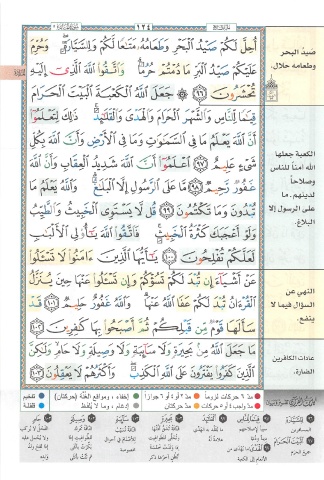 ١٢٤
أُحِلَّ لَكُمْ صَيْدُ ٱلْبَحْرِ وَطَعَامُهُۥ مَتَٰعًا لَّكُمْ وَلِلسَّيَّارَةِ ۖ وَحُرِّمَ
عَلَيْكُمْ صَيْدُ ٱلْبَرِّ مَا دُمْتُمْ حُرُمًا ۗ وَٱتَّقُوا۟ ٱللَّهَ ٱلَّذِىٓ إِلَيْهِ
تُحْشَرُونَ ﴿٩٦﴾ ۞ جَعَلَ ٱللَّهُ ٱلْكَعْبَةَ ٱلْبَيْتَ ٱلْحَرَامَ
قِيَٰمًا لِّلنَّاسِ وَٱلشَّهْرَ ٱلْحَرَامَ وَٱلْهَدْىَ وَٱلْقَلَٰٓئِدَ ۚ ذَٰلِكَ لِتَعْلَمُوٓا۟
أَنَّ ٱللَّهَ يَعْلَمُ مَا فِى ٱلسَّمَٰوَٰتِ وَمَا فِى ٱلْأَرْضِ وَأَنَّ ٱللَّهَ بِكُلِّ
شَىْءٍ عَلِيمٌ ﴿٩٧﴾ ٱعْلَمُوٓا۟ أَنَّ ٱللَّهَ شَدِيدُ ٱلْعِقَابِ وَأَنَّ ٱللَّهَ
غَفُورٌ رَّحِيمٌ ﴿٩٨﴾ مَّا عَلَى ٱلرَّسُولِ إِلَّا ٱلْبَلَٰغُ ۗ وَٱللَّهُ يَعْلَمُ مَا
تُبْدُونَ وَمَا تَكْتُمُونَ ﴿٩٩﴾ قُل لَّا يَسْتَوِى ٱلْخَبِيثُ وَٱلطَّيِّبُ
وَلَوْ أَعْجَبَكَ كَثْرَةُ ٱلْخَبِيثِ ۚ فَٱتَّقُوا۟ ٱللَّهَ يَٰٓأُو۟لِى ٱلْأَلْبَٰبِ
لَعَلَّكُمْ تُفْلِحُونَ ﴿١٠٠﴾ يَٰٓأَيُّهَا ٱلَّذِينَ ءَامَنُوا۟ لَا تَسْـَٔلُوا۟
عَنْ أَشْيَآءَ إِن تُبْدَ لَكُمْ تَسُؤْكُمْ وَإِن تَسْـَٔلُوا۟ عَنْهَا حِينَ يُنَزَّلُ
ٱلْقُرْءَانُ تُبْدَ لَكُمْ عَفَا ٱللَّهُ عَنْهَا ۗ وَٱللَّهُ غَفُورٌ حَلِيمٌ ﴿١٠١﴾ قَدْ
سَأَلَهَا قَوْمٌ مِّن قَبْلِكُمْ ثُمَّ أَصْبَحُوا۟ بِهَا كَٰفِرِينَ ﴿١٠٢﴾
مَا جَعَلَ ٱللَّهُ مِنۢ بَحِيرَةٍ وَلَا سَآئِبَةٍ وَلَا وَصِيلَةٍ وَلَا حَامٍ ۙ وَلَٰكِنَّ
ٱلَّذِينَ كَفَرُوا۟ يَفْتَرُونَ عَلَى ٱللَّهِ ٱلْكَذِبَ ۖ وَأَكْثَرُهُمْ لَا يَعْقِلُونَ ﴿١٠٣﴾
صيد البحر
وطعامه حلال.
الكعبة جعلها
الله أمناً للناس
وصلاحاً
لدينهم. ما
على الرسول إلا
البلاغ.
النهي عن
السؤال فيما لا
ينفع.
عادات الكافرين
الضارة.
مد ٦ حركات لزوماً مد٢ أو٤ أو٦ جوازاً إخفاء، ومواقع الغُنَّة (حركتان) تفخيم
مد واجب ٤ أو ٥ حركات مد حركتان إدغام، وما لا يُلفظ قلقلة